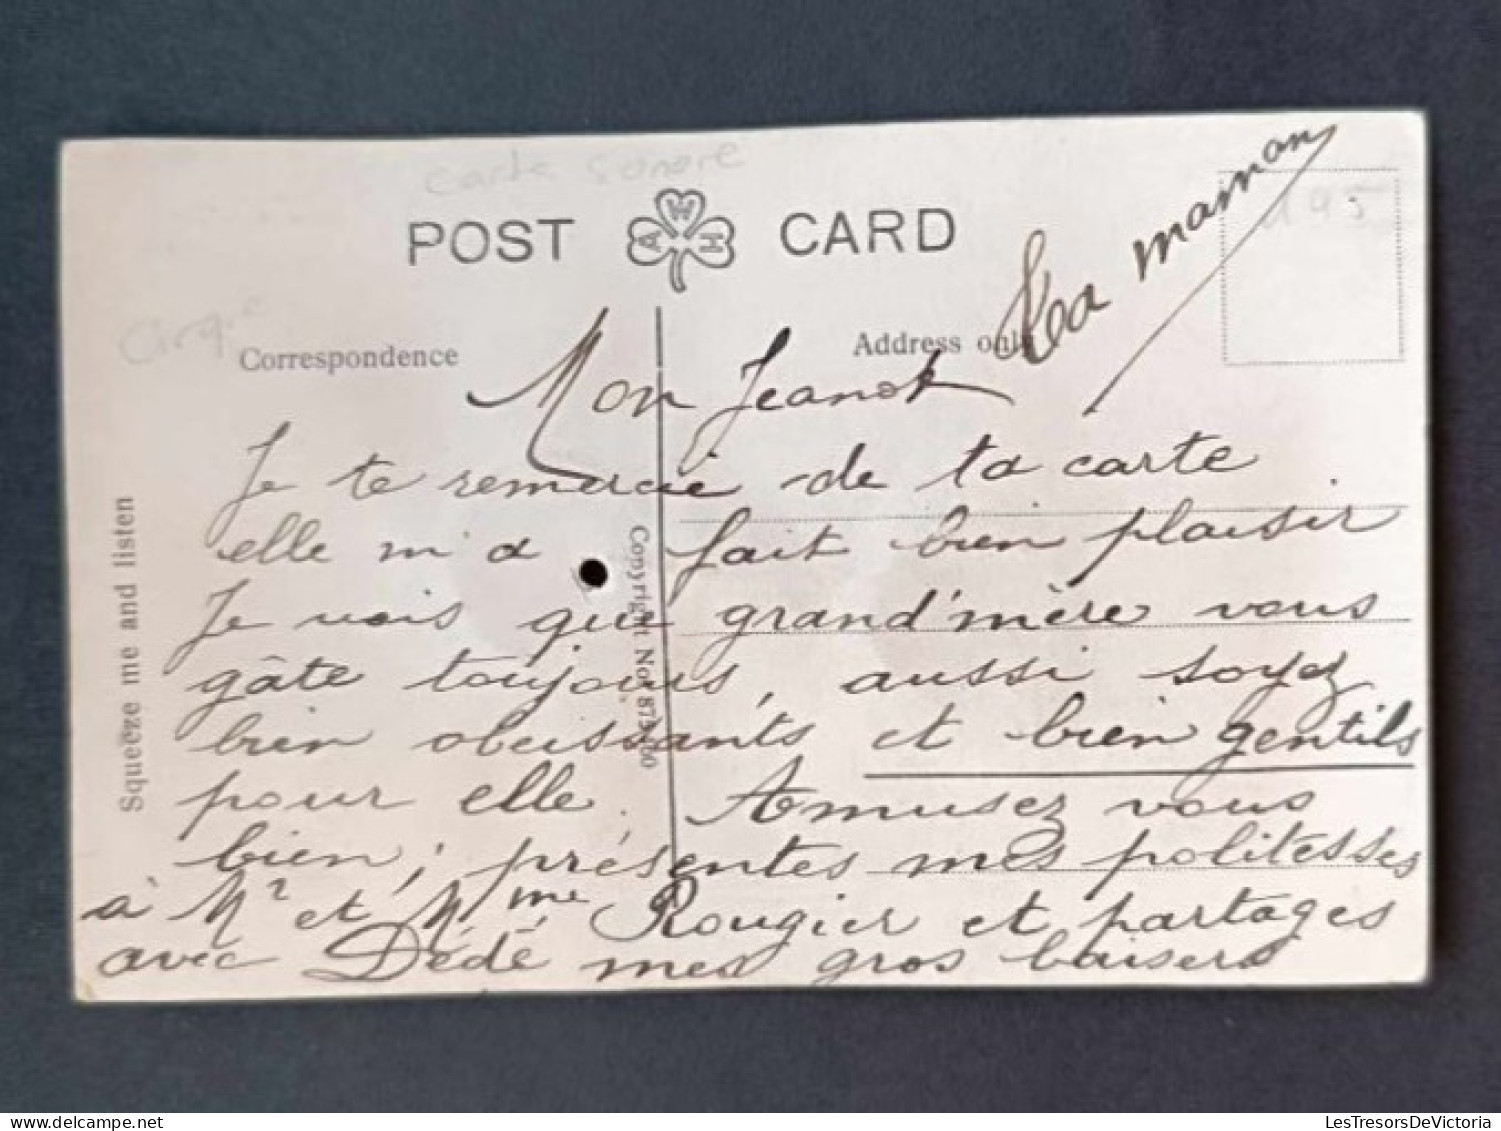 carte sonore
POST CARD
A W H
195
Cirque
Correspondence
Address only
Ta maman
Squeeze me and listen
Mon Jeanot
Je te remercie de ta carte
elle m'a fait bien plaisir
Je vois que grand'mère vous
gâte toujours, aussi soyez
bien obeissants et bien gentils
pour elle. Amusez vous
bien, présentes mes politesses
à Mr et Mme Rougier et partages
avec Dédé mes gros baisers
Copyright No.
LesTresorsDeVictoria